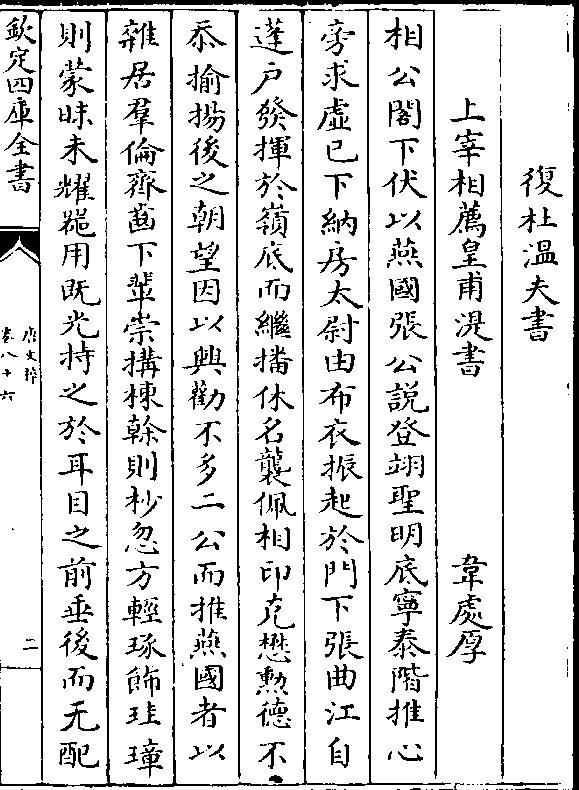 復杜温夫書
上宰相薦皇甫湜書　韋處厚
相公閣下伏以燕國張公説登翊聖明底寧泰階推心
旁求虚已下納房太尉由布衣振起於門下張曲江自
蓬户發揮於嶺底而繼播休名襲佩相印克懋勲德不
忝揄揚後之朝望因以興勸不多二公而推燕國者以
雜居羣倫齊齒下輩崇搆棟榦則杪忽方輕琢飾珪璋
則蒙昧未耀麁用既光持之於耳目之前垂後而无配
欽定四庫全書
唐文粹
卷八十六
二